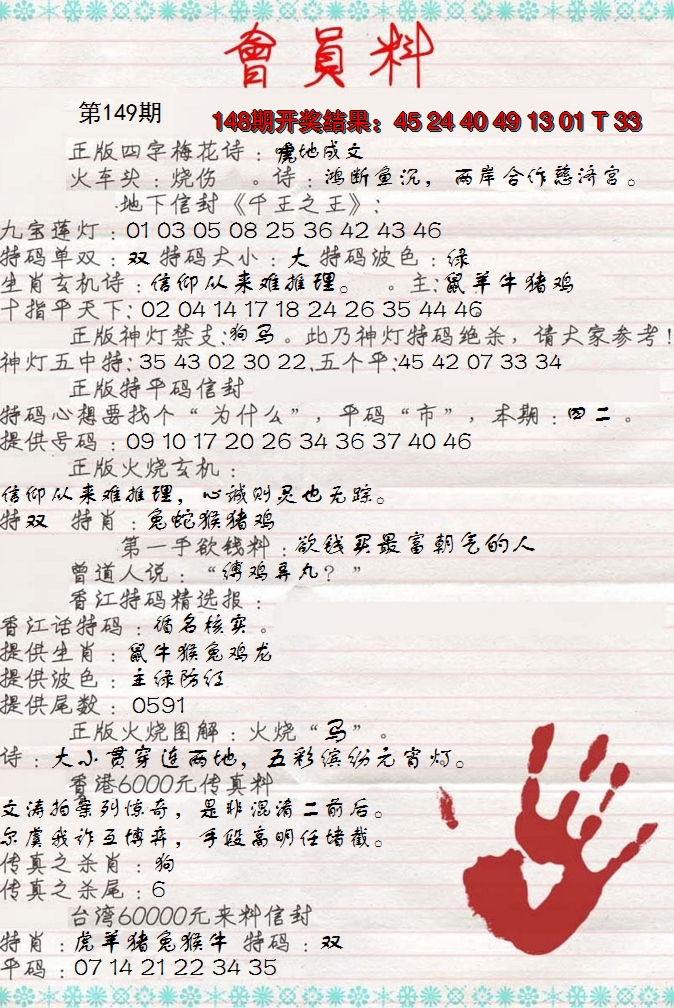 會員料
第149期
148期开奖结果：45 24 40 49 13 01 T 33
正版四字梅花诗：虎地成文
火车头：烧伤 。诗：鸿断鱼沉，两岸合作慈济宫。
地下信封《千王之王》：
九宝莲灯：01 03 05 08 25 36 42 43 46
特码单双：双 特码大小：大 特码波色：绿
生肖玄机诗：信仰从来难推理。 。主：鼠羊牛猪鸡
十指平天下：02 04 14 17 18 24 26 35 44 46
正版神灯禁支：狗马。此乃神灯特码绝杀，请大家参考！
神灯五中特：35 43 02 30 22.五个平：45 42 07 33 34
正版特平码信封
特码心想要找个“为什么”，平码“市”，本期：四二。
提供号码：09 10 17 20 26 34 36 37 40 46
正版火烧玄机：
信仰从来难推理，心诚则灵也无踪。
特双 特肖：兔蛇猴猪鸡
第一手欲钱料：欲钱买最富朝气的人
曾道人说：“缚鸡弄丸？”
香江特码精选报：
香江话特码：循名核实。
提供生肖：鼠牛猴兔鸡龙
提供波色：主绿防红
提供尾数：0591
正版火烧图解：火烧“马”。
诗：大小贯穿连两地，五彩缤纷元宵灯。
香港6000元传真料
文涛拍案列惊奇，是非混淆二前后。
尔虞我诈互博弈，手段高明任堵截。
传真之杀肖：狗
传真之杀尾：6
台湾60000元来料信封
特肖：虎羊猪兔猴牛 特码：双
平码：07 14 21 22 34 35